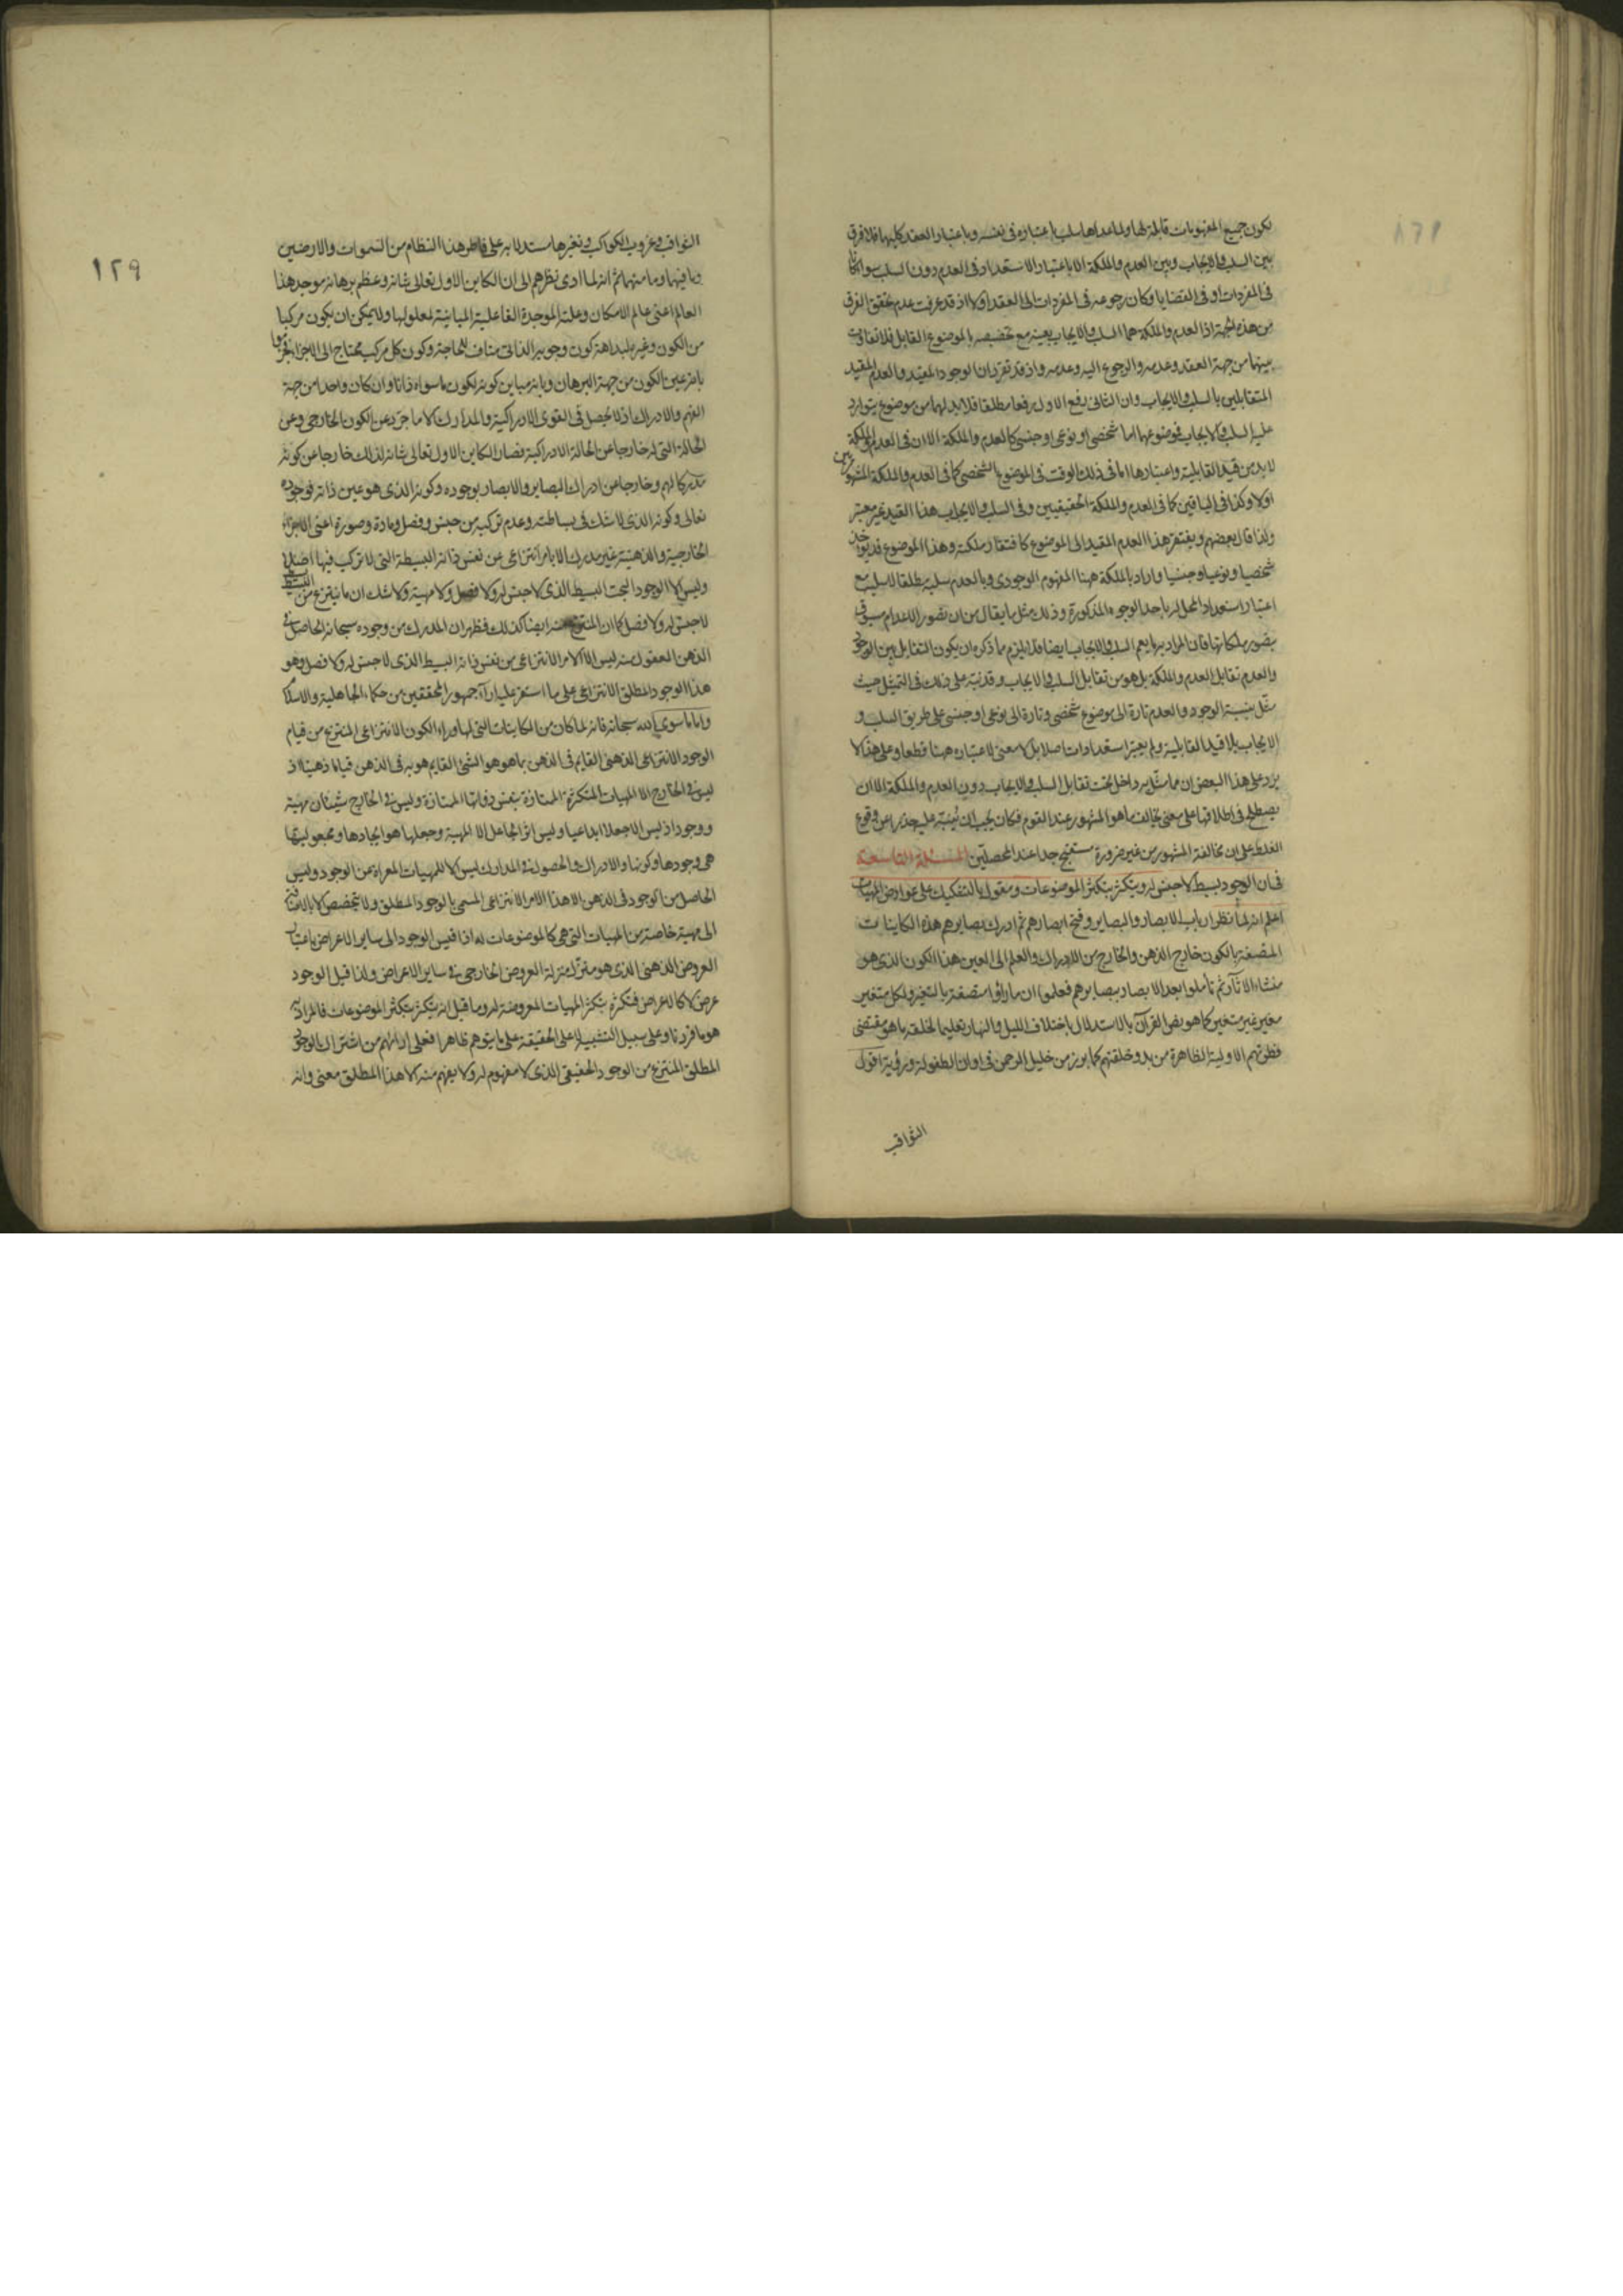 يكون جميع المفهومات قابلة لها ولما عداها سلب باعتباره في نفسه وباعتبار العقد كليهما فلا فرق
بين السلب والايجاب وبين العدم والملكة الا باعتبار الاستعداد في العدم دون السلب سواء كانا
في المفردات او في القضايا وكان رجوعه في المفردات الى العقد اولا اذ قد عرفت عدم تحقق الفرق
من هذه الجهة اذا العدم والملكة هما السلب والايجاب بعينه مع تخصيصه بالموضوع القابل فلا تفاوت
بينهما من جهة العقد وعدمه والرجوع اليه وعدمه واذ قد تقرر ان الوجود المقيد والعدم المقيد
المتقابلين بالسلب والايجاب وان الثاني رفع الاول رفعا مطلقا فلا بد لهما من موضوع يتوارد
عليه السلب والايجاب فموضوعهما اما شخصي او نوعي او جنسي كالعدم والملكة الا ان في العدم والملكة
لا بد من قيد القابلية واعتبارها اما في ذلك الوقت في الموضوع الشخصي كما في العدم والملكة المشهوريين
اولا وكذا في الباقيين كما في العدم والملكة الحقيقيين وفي السلب والايجاب هذا القيد غير معتبر
ولذا قال بعضهم ويفتقر هذا العدم المقيد الى الموضوع كافتقار ملكته وهذا الموضوع قد يؤخذ
شخصيا ونوعيا وجنسيا واراد بالملكة هنا المفهوم الوجودي وبالعدم سلبه مطلقا لا سلبه مع
اعتبار استعداد المحل له باحد الوجوه المذكورة وذلك مثل ما يقال من ان تصور الاعدام مسبوق
بتصور ملكاتها فان المراد بها يعم السلب والايجاب ايضا فلا يلزم مما ذكره ان يكون التقابل بين الوجود
والعدم تقابل العدم والملكة بل هو من تقابل السلب والايجاب وقد نبه على ذلك في التمثيل حيث
مثل بنسبة الوجود والعدم تارة الى موضوع شخصي وتارة الى نوعي او جنسي على طريق السلب و
الايجاب بلا قيد القابلية ولم يعتبر استعدادات اصلا بل لا معنى لاعتباره هنا قطعا وعلى هذا لا
يرد على هذا البعض ان ما مثل به داخل تحت تقابل السلب والايجاب دون العدم والملكة الا ان
يصطلح في اطلاقها على معنى يخالف ما هو المشهور عند القوم فكان يجب ان ينبه عليه حذرا عن وقوع
الغلط على ان مخالفة المشهور من غير ضرورة مستقبح جدا عند المحصلين المسئلة التاسعة
في ان الوجود بسيط لا جنس له ويتكثر بتكثر الموضوعات ومقول بالتشكيك على عوارض المهيات
اعلم انه لما نظر ارباب الابصار والبصاير وفتح ابصارهم ثم ادرك بصايرهم هذه الكاينات
المتصفة بالكون خارج الذهن والخارج من الادراك والعلم الى العين هذا الكون الذي هو
منشاء الاثار ثم تأملوا بعد الابصار ببصايرهم فعلموا ان ما راؤا متصفة بالتغير ولكل متغير
مغير غير متغير كما هو نص القرآن بالاستدلال باختلاف الليل والنهار تعليما لخلقه بما هو مقتضى
فطرتهم الاولية الظاهرة من بدو خلقتهم كما برز من خليل الرحمن في اوان الطفولة ورؤية افول
الثواقب
١٢٩
الثواقب وغروب الكواكب وتغيرها مستدلا به على فاطر هذا النظام من السموات والارضين
وما فيها وما منهما ثم انه لما ادى نظرهم الى ان الكاين الاول تعالى شانه وعظم برهانه موجد هذا
العالم اعني عالم الامكان وعلته الموجدة الفاعلية المباينة لمعلولها ولا يمكن ان يكون مركبا
من الكون وغيره لبداهة كون وجوبه الذاتي مناف للحاجة وكون كل مركب محتاج الى الاجزاء
بانه عين الكون من جهة البرهان وبانه مباين كونه لكون ما سواه ذاتا وان كان واحدا من جهة
الفهم والادراك اذ لا يحصل في القوى الادراكية والمدارك الا ما جرد عن الكون الخارجي وعن
الحالة التي له خارجا عن الحالة الادراكية فصار الكاين الاول تعالى شانه لذلك خارجا عن كونه
مدركا لهم وخارجا عن ادراك البصاير والابصار بوجوده وكونه الذي هو عين ذاته فوجوده
تعالى وكونه الذي لا شك في بساطته وعدم تركبه من جنس وفصل ومادة وصورة اعني الاجزاء
الخارجية والذهنية غير مدرك الا بامر انتزاعي عن نفس ذاته البسيطة التي لا تركب فيها اصلا
وليس الا الوجود البحت البسيط الذي لا جنس له ولا فصل ولا مهية ولا شك ان ما ينتزع من البسيط بسيط
لا جنس له ولا فصل كما ان المنتزع منه ايضا كذلك فظهر ان المدرك من وجوده سبحانه الحاصل في
الذهن المعقول منه ليس الا الامر الانتزاعي من نفس ذاته البسيط الذي لا جنس له ولا فصل وهو
هذا الوجود المطلق الانتزاعي على ما استقر عليه اراء جمهور المحققين من حكماء الجاهلية والاسلام
واما ما سوى الله سبحانه فانه لما كان من الكاينات التي لها وراء الكون الانتزاعي المنتزع من قيام
الوجود الانتزاعي الذهني القايم في الذهن بما هو هو الشئ القايم هو به في الذهن قياما ذهنيا اذ
ليس في الخارج الا المهيات المتكثرة الممتازة بنفس ذواتها الممتازة وليس في الخارج شيئان مهية
ووجود اذ ليس الا جعلا ابداعيا وليس اثر الجاعل الا المهية وجعلها هو ايجادها ومجعوليتها
هي وجودها وكونها والادراك والحصول في المدارك ليس الا للمهيات المعراة من الوجود وليس
الحاصل من الوجود في الذهن الا هذا الامر الانتزاعي المسمى بالوجود المطلق ولا يتخصص الا بالاضافة
الى مهية خاصة من المهيات التي هي كالموضوعات له اذا قيس الوجود الى ساير الاعراض باعتبار
العروض الذهني الذي هو منزل منزلة العروض الخارجي في ساير الاعراض ولذا قيل الوجود
عرض لا كالاعراض فتكثره بتكثر المهيات المعروضة له وما قيل انه يتكثر بتكثر الموضوعات فالمراد به
هو ما قررنا وعلى سبيل التشبيه لا على الحقيقة على ما يتوهم ظاهرا فعلى من اشتراك الوجود
المطلق المنتزع من الوجود الحقيقي الذي لا مفهوم له ولا يفهم منه الا هذا المطلق معنى وانه